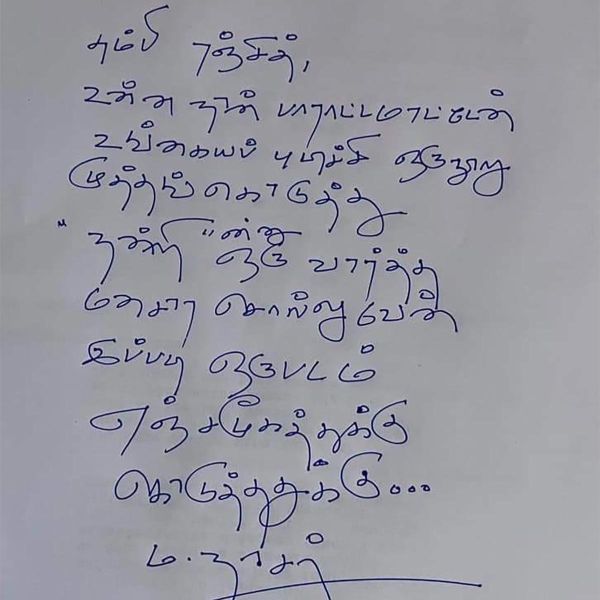 தம்பி ரஞ்சித்,
உன்ன நான் பாராட்டமாட்டேன்
உங்கையப் புடிச்சி ஒருநூறு
முத்தங்கொடுத்து
"நன்றி"ன்னு
ஒரு வார்த்த
மனசார சொல்லுவேன்
இப்படி ஒருபடம்
எஞ்சமூகத்துக்கு
கொடுத்ததுக்கு...
ம. நாசர்